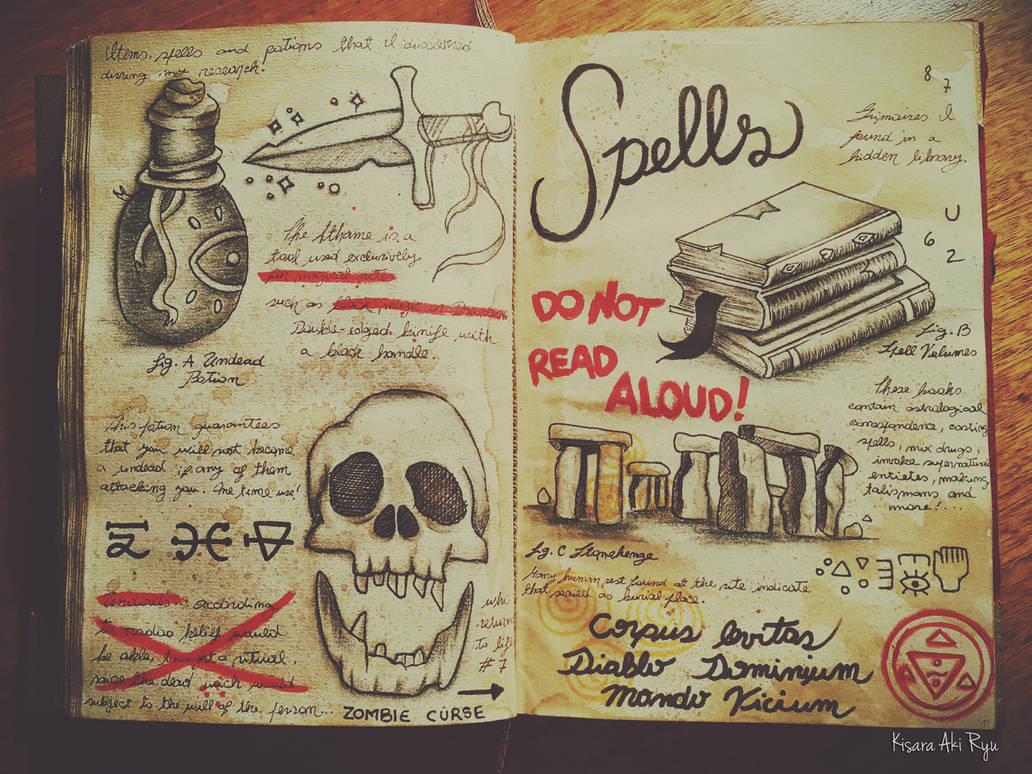 Items, spells and potions that I discovered
during my research.
The Athame is a
tool used exclusively
for magical rites
such as black magic
Double-edged knife with
a black handle.
fig. A Undead
Potion
This potion guarantees
that you will not become
a undead if any of them
attacking you. One time use!
according
to belief would
be able, ritual,
raise the dead wich would
subject to the will of the person...
who
return
to life
# 7
ZOMBIE CURSE
Spells
8
7
Grimoires I
found in a
hidden library.
U
6
2
DO NOT
READ
ALOUD!
fig. B
Spell Volumes
These books
contain astrological
correspondence, casting
spells, mix drugs,
invoke supernatural
entieties, making
talismans and
more!...
fig. C Stonehenge
Many human rest found at the site indicate
that served as burial place.
Corpus levitas
Diablo Dominyum
Mondo Vicium
Kisara Aki Ryu